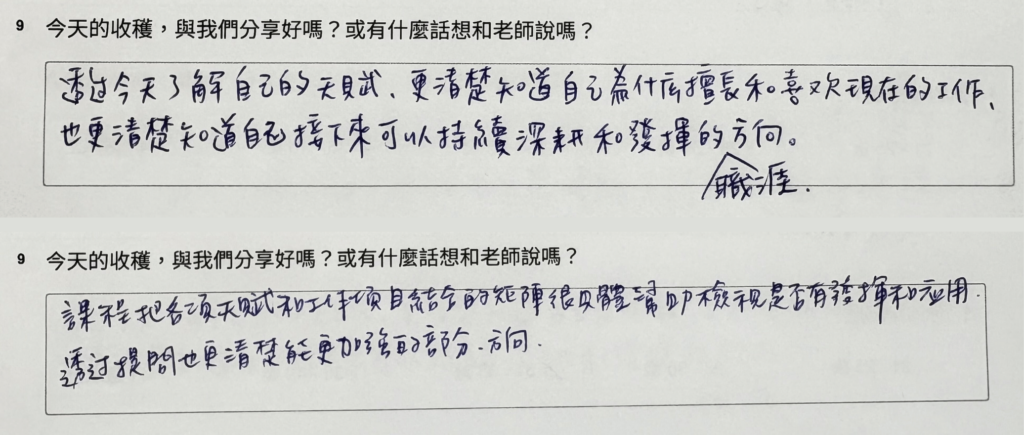 9 今天的收穫，與我們分享好嗎？或有什麼話想和老師說嗎？
透过今天了解自己的天賦、更清楚知道自己為什麼擅長和喜欢現在的工作、
也更清楚知道自己接下來可以持續深耕和發揮的方向。
職涯.
9 今天的收穫，與我們分享好嗎？或有什麼話想和老師說嗎？
課程把各項天賦和工作項目結合的矩陣很具體幫助檢視是否有發揮和应用.
透过提問也更清楚能更加強的部分、方向.